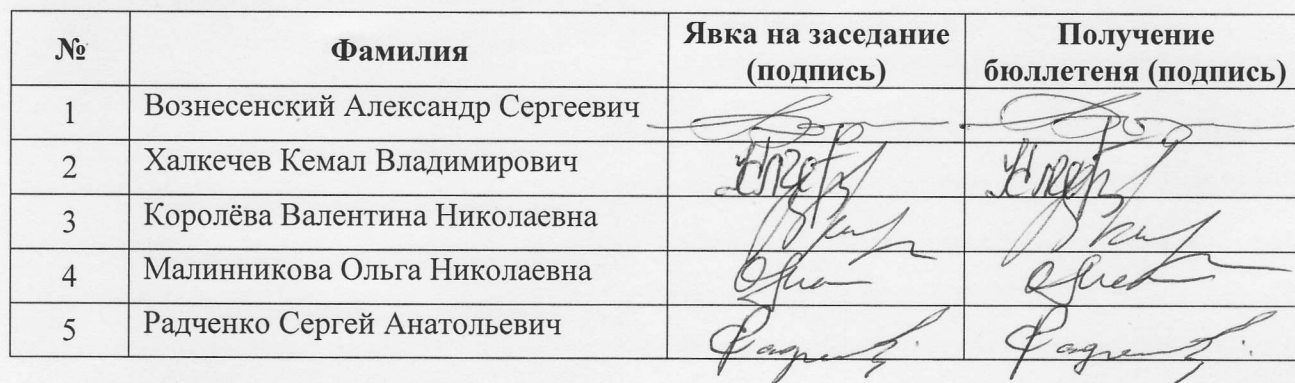 № Фамилия Явка на заседание (подпись) Получение бюллетеня (подпись)
1 Вознесенский Александр Сергеевич
2 Халкечев Кемал Владимирович
3 Королёва Валентина Николаевна
4 Малинникова Ольга Николаевна
5 Радченко Сергей Анатольевич